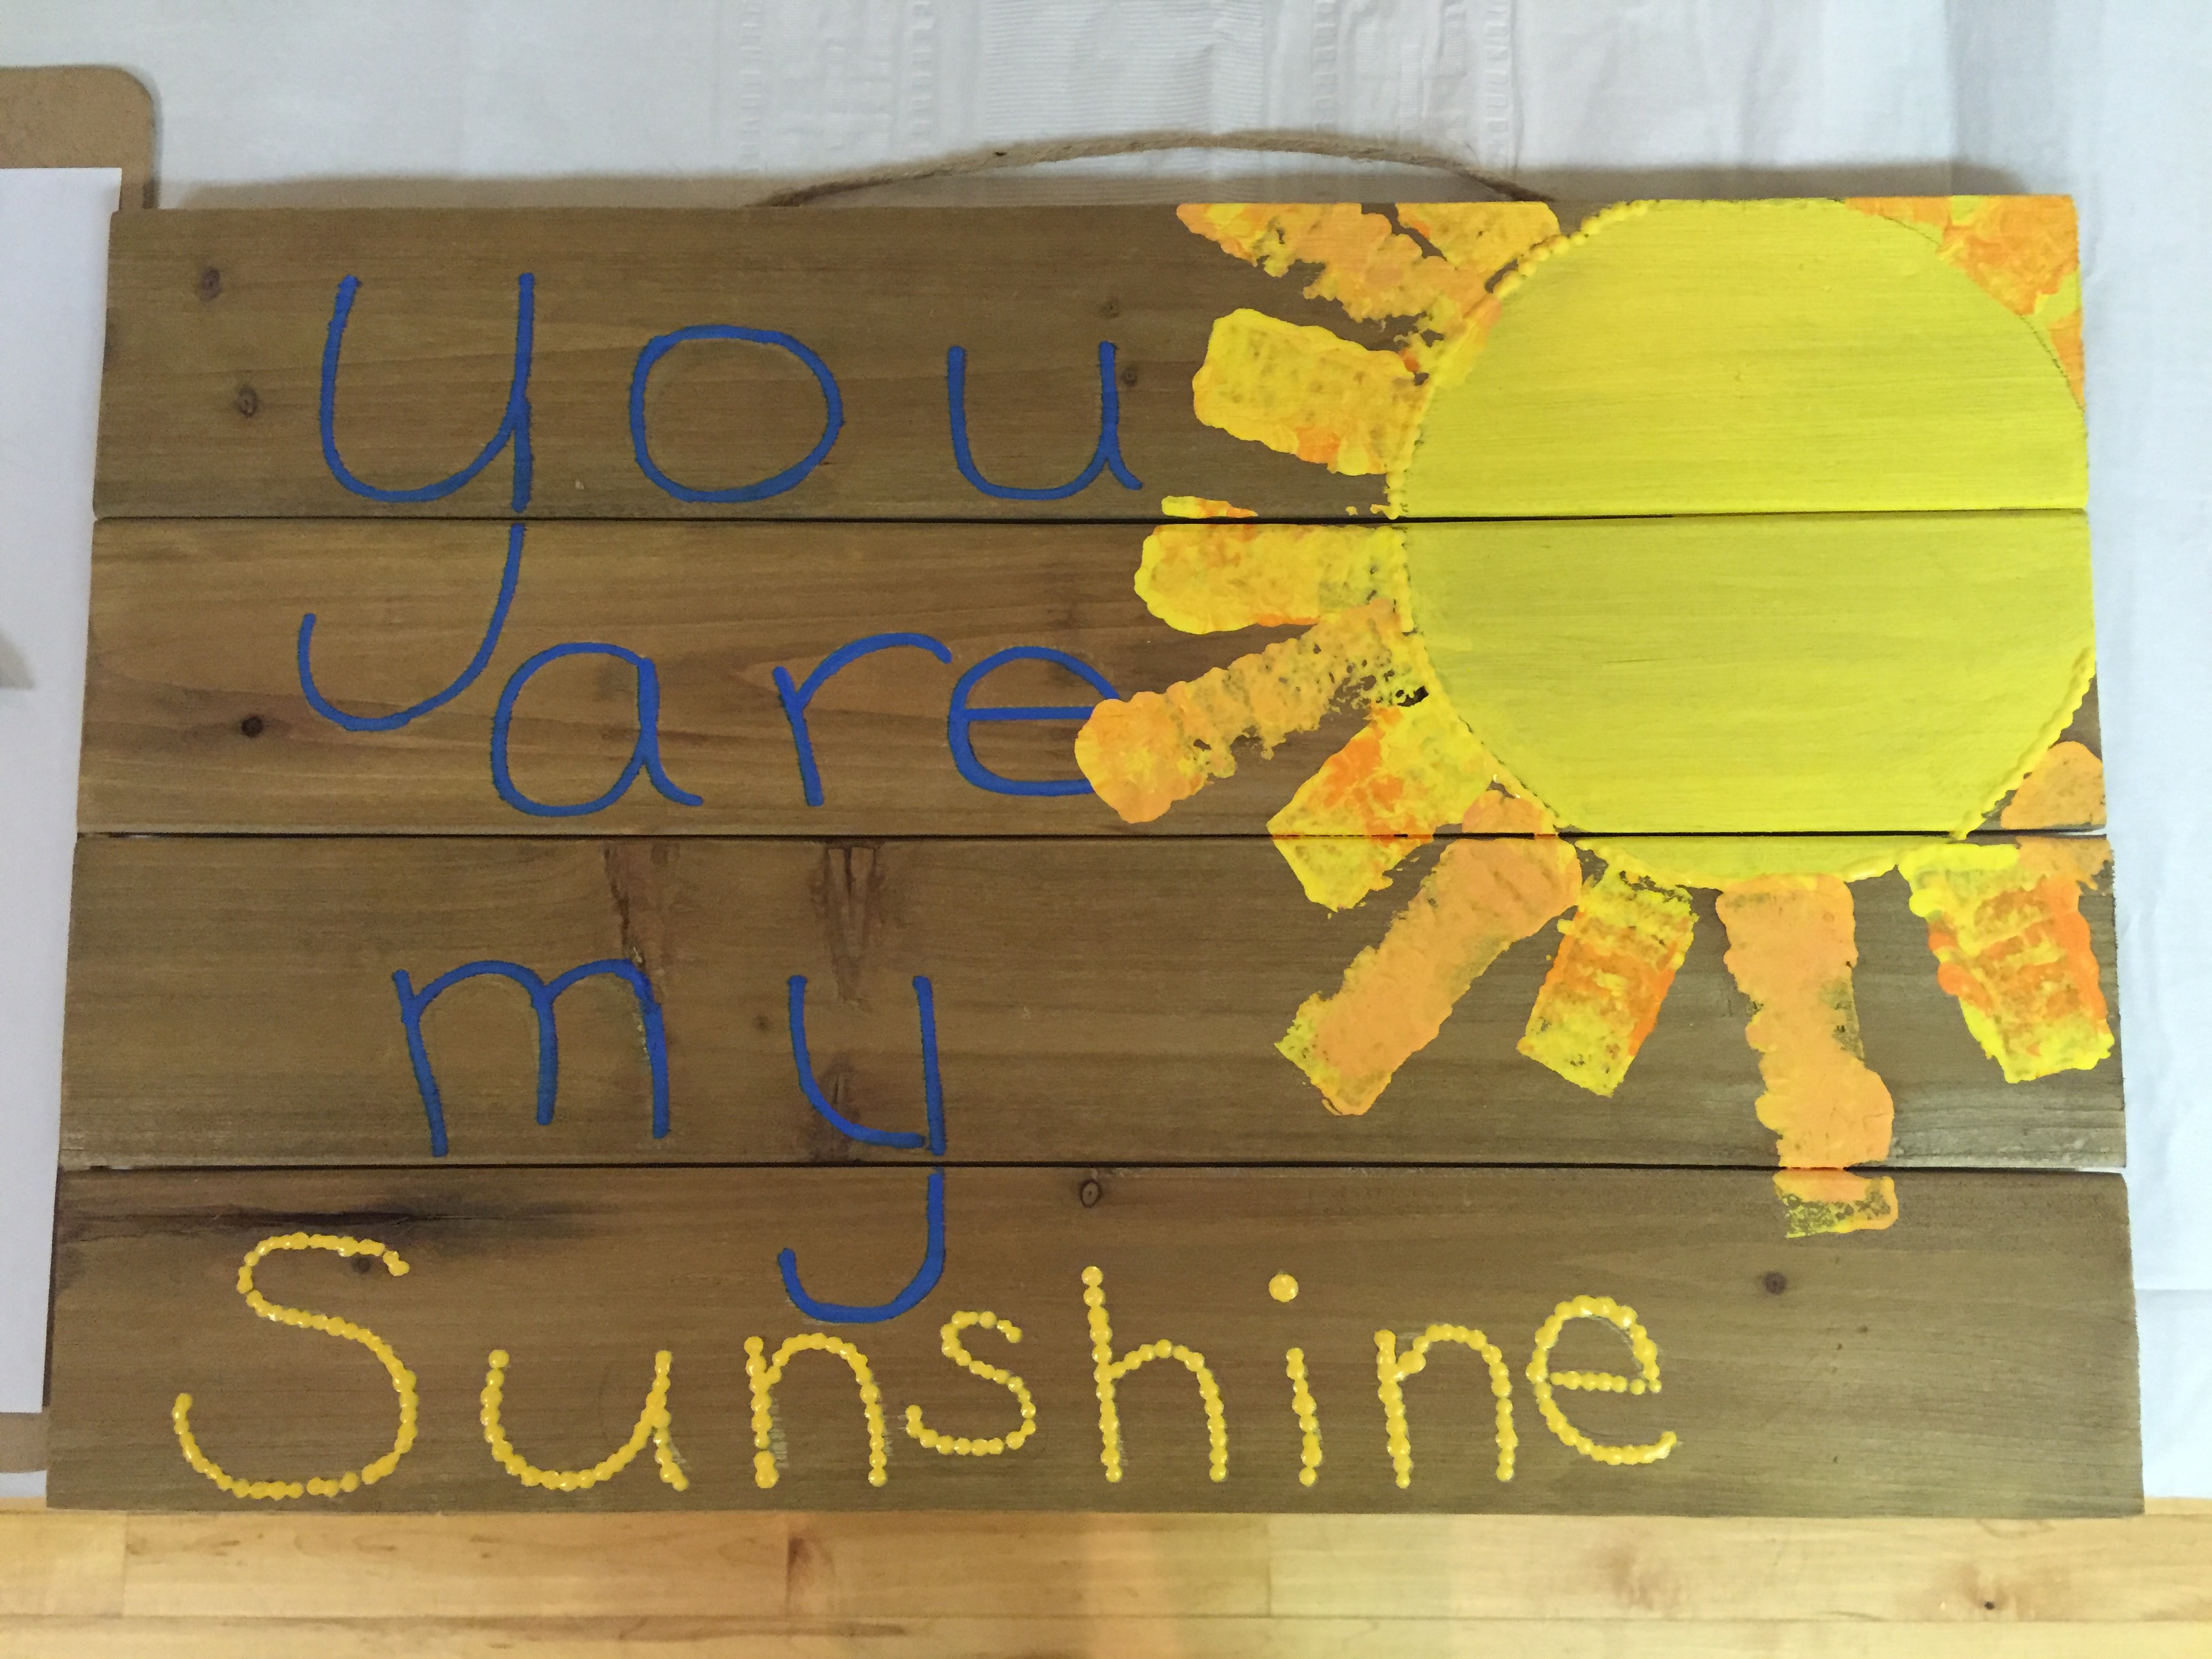 you
are
my
Sunshine